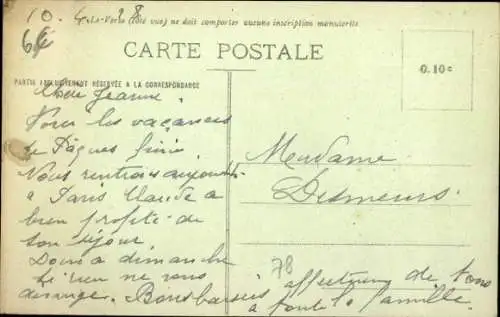 10. 4. 28
Le Verso (côté vue) ne doit comporter aucune inscription manuscrite
CARTE POSTALE
PARTIE EXCLUSIVEMENT RÉSERVÉE A LA CORRESPONDANCE
0.10c
Jeanne,
Voici les vacances
de Pâques finies
Nous rentrons aujourd'hui
à Paris Claude a
bien profité de
son séjour.
Donc à dimanche
si rien ne vous
dérange. Bons baisers
Madame
Desmeurs
78
affectueux de tous
à toute la famille.